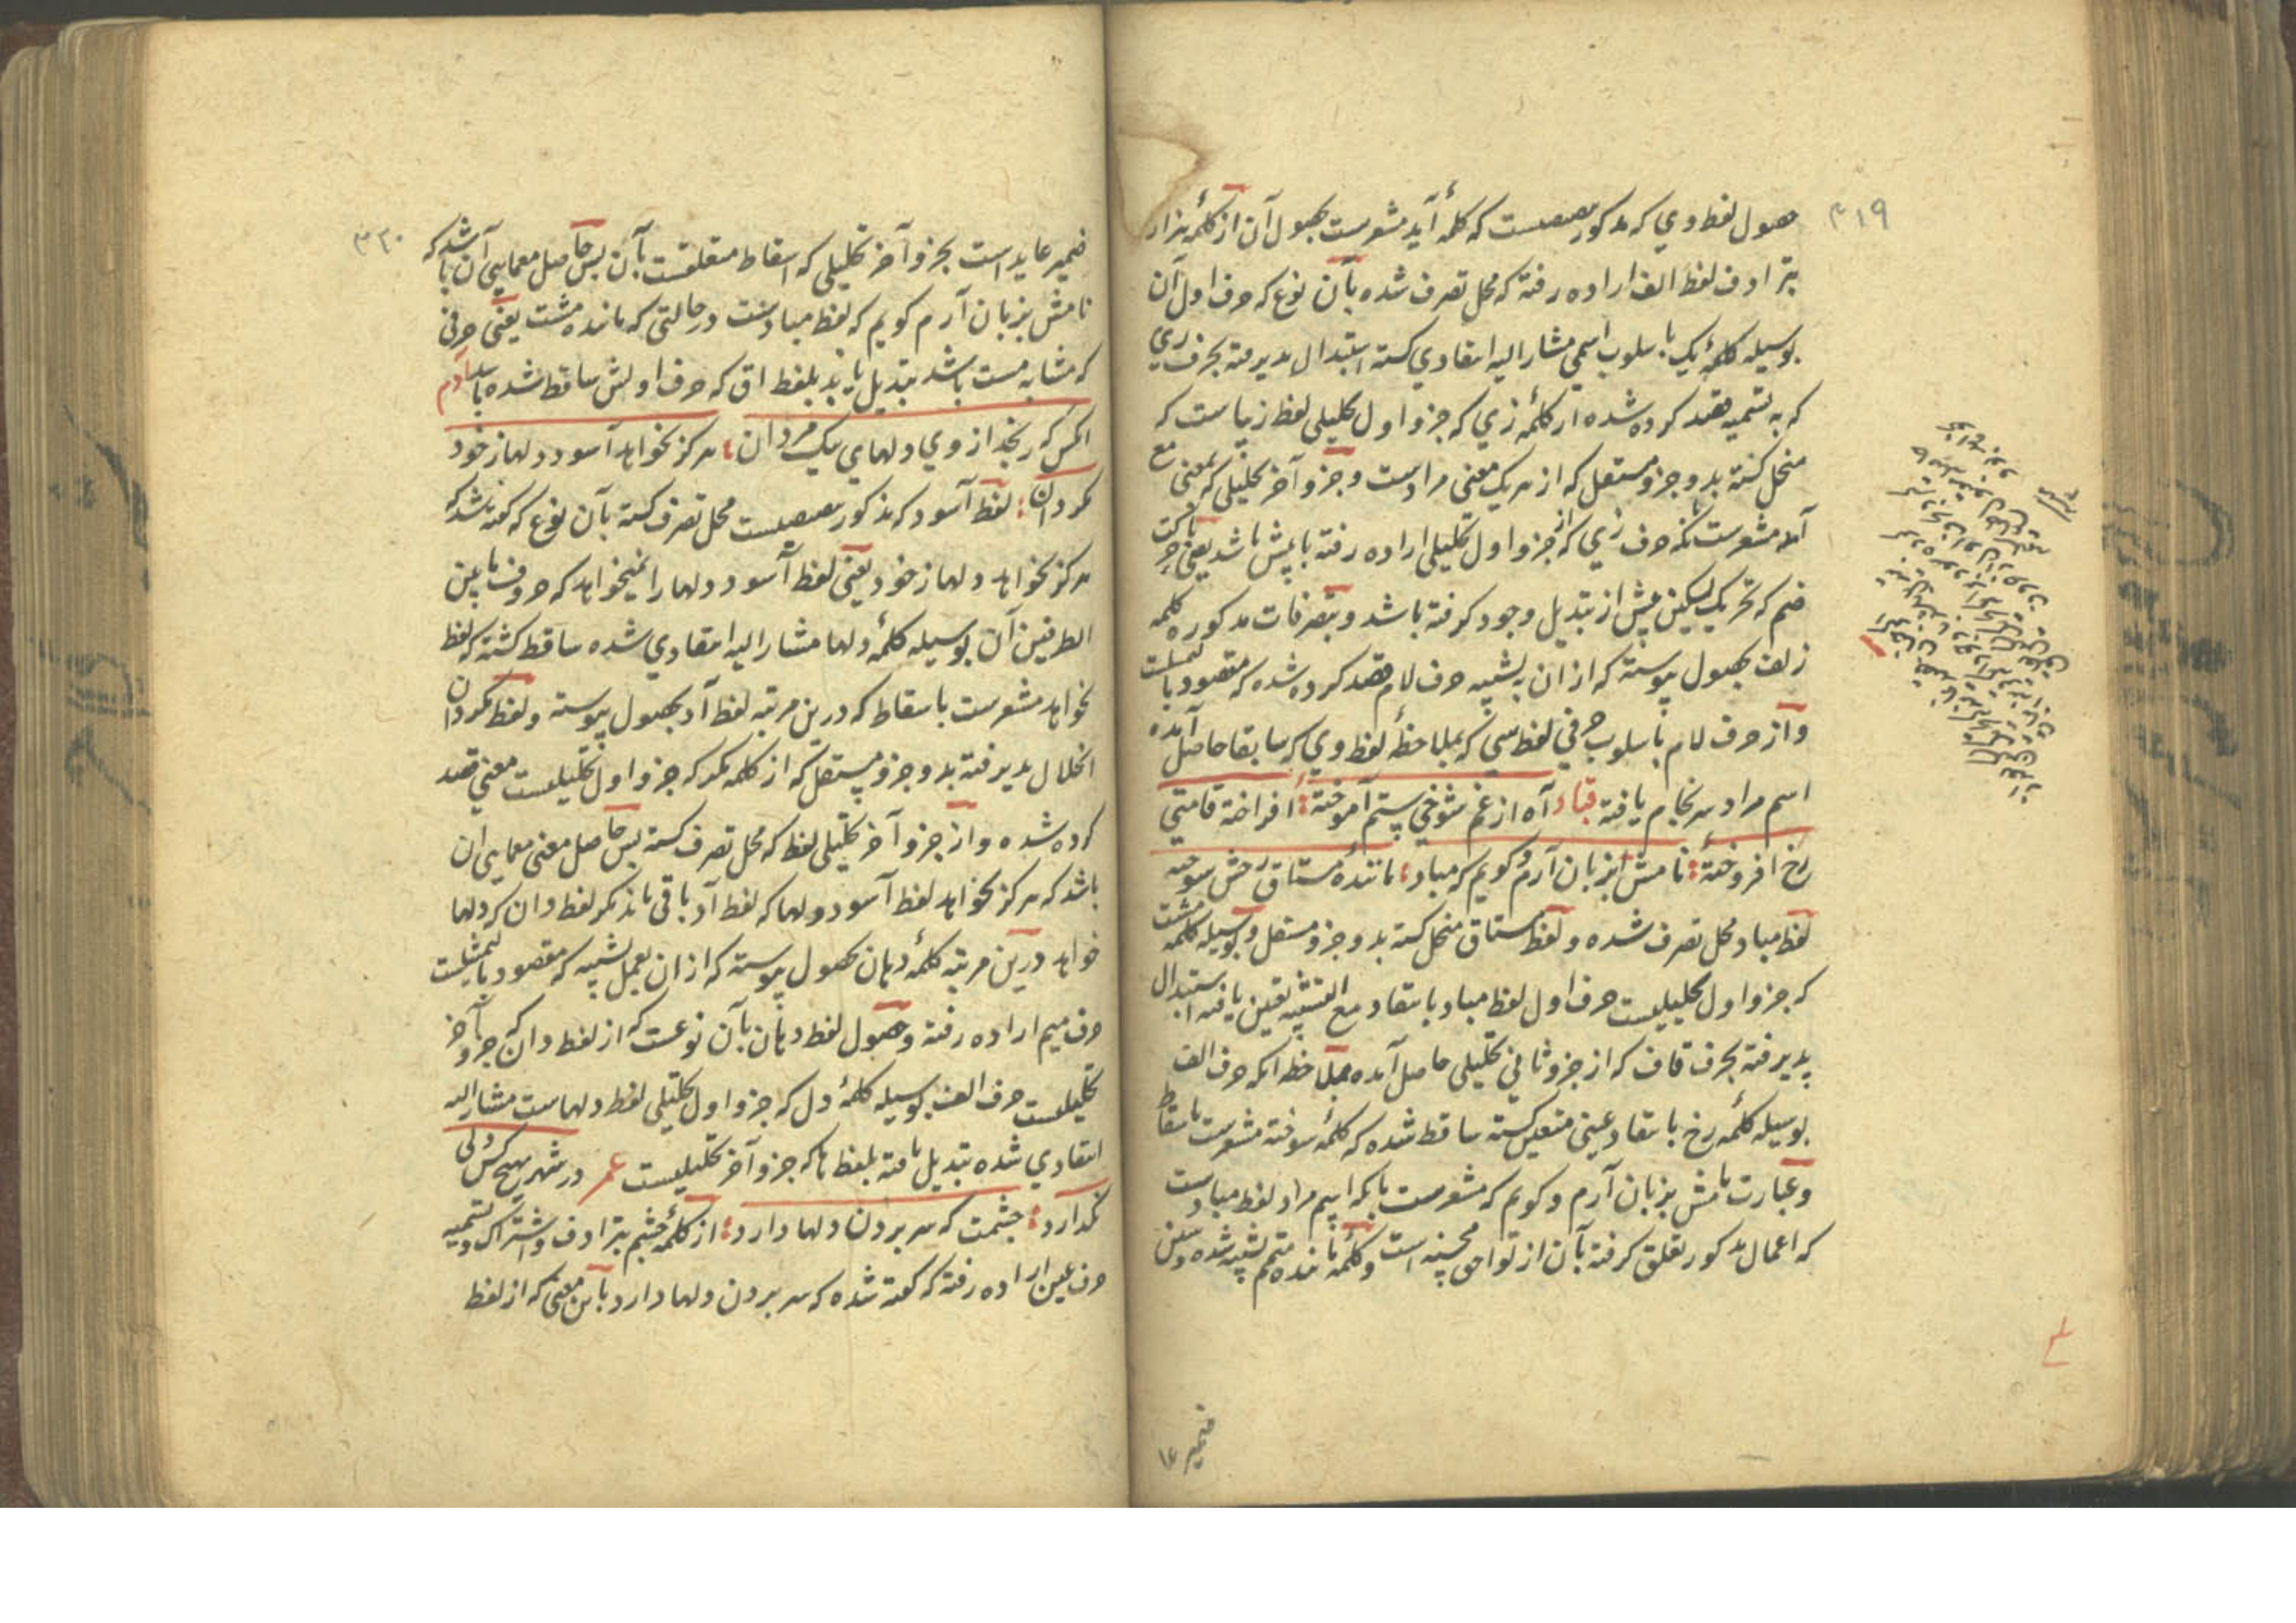 ۳۱۹
حصول لفظ وي که مذکور بیصیست که کلمهٔ آید مشعرست بحصول آن از کلمهٔ هزار
بترادف لفظ الف اراده رفته که محل تصرف شده بآن نوع که حرف اول آن
بوسیله کلمهٔ یک باسلوب اسمی مشار الیه انتقادي کشته استبدال پذیرفته بحرف زي
که به تسمیه قصد کرده شده از کلمهٔ زي که جزو اول تحلیلی لفظ زیباست که
منحل کشته بدو جزو مستقل که از هر یک معنی مرادست و جزو آخر تحلیلی که بمعنی مع
آمده مشعرست بآنکه حرف زي که از جزو اول تحلیلی اراده رفته با پیش باشد یعنی حرکت
ضم که تحریک لیکن پیش از تبدیل وجود کرفته باشد و بتصرفات مذکوره کلمه
زلف بحصول پیوسته که از ان به تشبیه حرف لام قصد کرده شده که مقصود بالتمثیلست
و از حرف لام باسلوب حرفی لفظ سی که بملاحظهٔ لفظ وي که سابقا حاصل آمده
اسم مراد سرنجام یافته قباد آه از غم شوخی ستم آموختهٔ افراخته قامتی
رخ افروختهٔ نامش بزبان آرم و کویم که مباد مانندهٔ مشتاق رخش سوخته
لفظ مباد محل تصرف شده و لفظ مشتاق منحل کشته بدو جزو مستقل و بوسیله کلمه مشت
که جزو اول تحلیلیست حرف اول لفظ مباد بانتقاد مع التشبیه تعین یافته استبدال
پذیرفته بحرف قاف که از جزو ثانی تحلیلی حاصل آمده بملاحظه آنکه حرف الف
بوسیله کلمهٔ رخ بانتقاد عینی متعین کشته ساقط شده که کلمهٔ سوخته مشعرست باسقاط
و عبارت نامش بزبان آرم و کویم که مشعرست بآنکه اسم مراد لفظ مبادست
که اعمال مذکور تعلق کرفته بآن از تواحی محسنه است و کلمهٔ مانده متمم تشبیه شده و شین
ضمیر
۳۲۰
ضمیر عاید است بجزو آخر تحلیلی که اسقاط متعلقست بآن پس حاصل معمایی آن باشد که
نامش بزبان آرم کویم که لفظ مبادست در حالتی که مانده مشت یعنی حرفی
که مشابه مست باشد تبدیل یابد بلفظ اق که حرف اولش ساقط شده باشد آدم
آنکس که رنجد از وي دلهاي نیک مردان هرکز نخواهد آسود دلها ز خود
مکردان لفظ آسود که مذکور بیصیست محل تصرف کشته بآن نوع که کفته شد که
هرکز نخواهد دلها ز خود یعنی لفظ آسود دلها را نمیخواهد که حروف مابین
الطرفین آن بوسیله کلمهٔ دلها مشار الیه انتقادي شده ساقط کشته که لفظ
نخواهد مشعرست باسقاط که درین مرتبه لفظ آد بحصول پیوسته و لفظ مکردان
انحلال پذیرفته بدو جزو مستقل که از کلمه مکر که جزو اول تحلیلیست معنی قصد
کرده شده و از جزو آخر تحلیلی لفظ که محل تصرف کشته پس حاصل معنی معمایی آن
باشد که هرکز نخواهد لفظ آسود دلها که لفظ آد باقی ماند مکر لفظ دان که دلها
خواهد درین مرتبه کلمهٔ دهان بحصول پیوسته که از ان بعمل تشبیه که مقصود بالتمثیلست
حرف میم اراده رفته و حصول لفظ دهان بآن نوعست که از لفظ دان که جزو آخر
تحلیلیست حرف الف بوسیله کلمهٔ دل که جزو اول تحلیلی لفظ دلهاست مشار الیه
انتقادي شده تبدیل یافته بلفظ ها که جزو آخر تحلیلیست عمر در شهر هیچ کس دلی
نکذارد چشمت که سر بردن دلها دارد از کلمهٔ چشم بترادف و اشتراک و تسمیه
حرف عین اراده رفته که کفته شده که سر بردن دلها دارد باین معنی که از لفظ